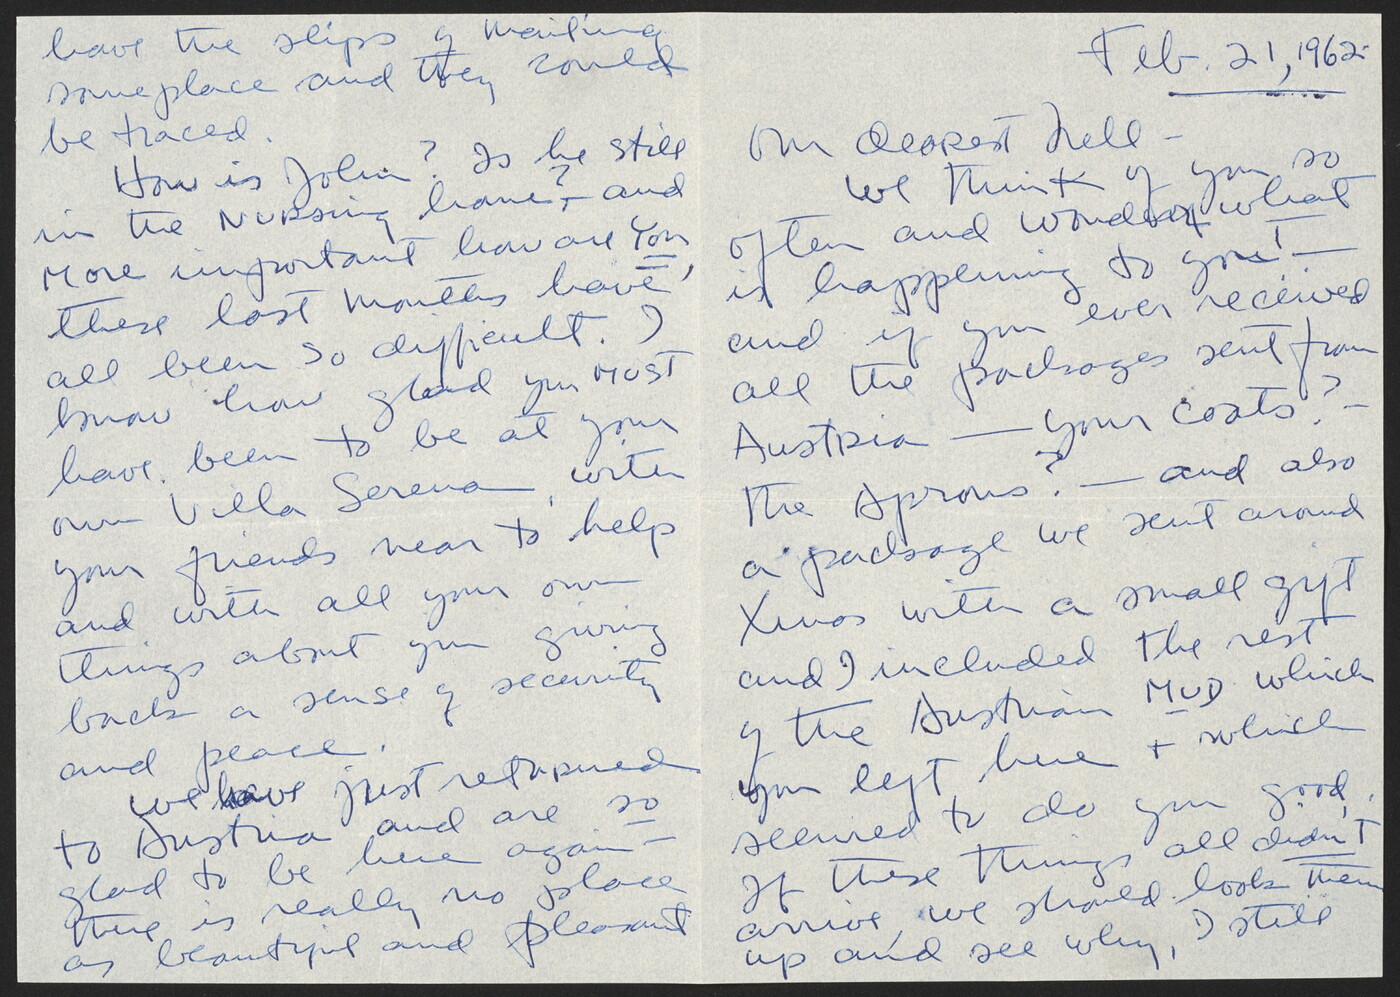 Feb. 21, 1962.
Our dearest Nell -
We think of you so
often and wonder what
is happening to you! —
and if you ever received
all the packages sent from
Austria — your coats? -
the Aprons? — and also
a package we sent around
Xmas with a small gift
and I included the rest
of the Austrian MUD which
you left here + which
seemed to do you good.
If these things all didn't
arrive, we should look them
up and see why, I still
have the slips of mailing
someplace and they could
be traced.
How is John? Is he still
in the Nursing home? - and
more important how are You,
these last months have
all been so difficult. I
know how glad you MUST
have been to be at your
own Villa Serena, with
your friends near to help
and with all your own
things about you giving
back a sense of security
and peace.
We have just returned
to Austria and are so
glad to be here again -
there is really no place
as beautiful and pleasant